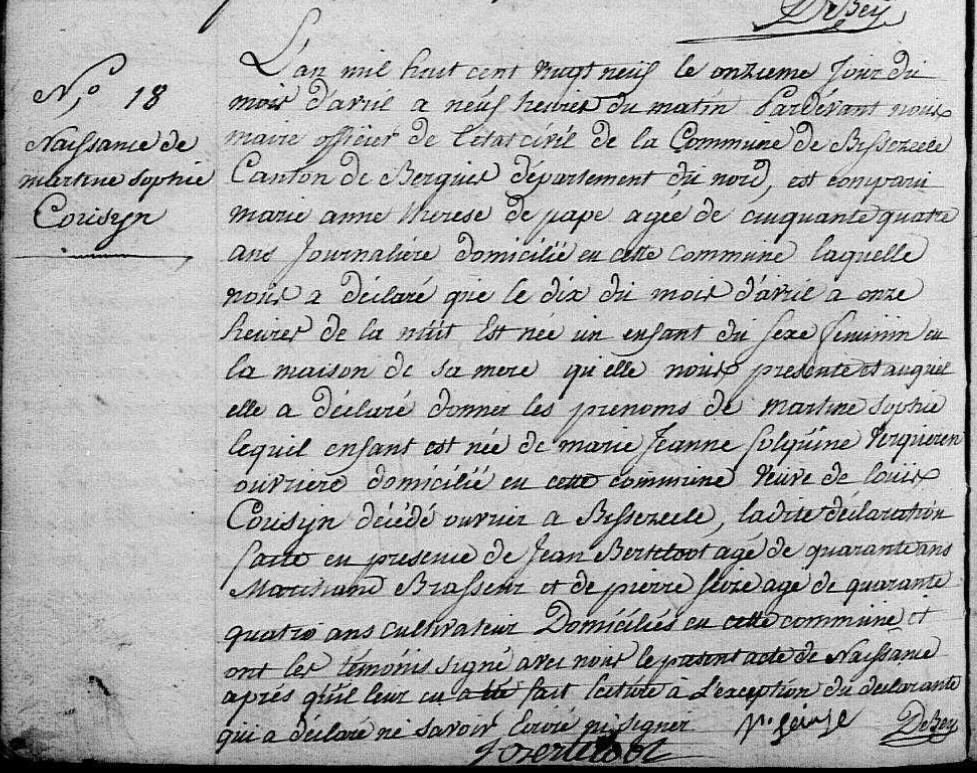 DeBey
N.° 18
Naissance de
martine sophie
Coisyn
L'an mil huit cent vingt neuf le onzieme jour du
mois d'avril a neuf heures du matin Pardevant nous
maire officier de l'etat civil de la Commune de Bissezeele
Canton de Bergues département du nord, est comparu
marie anne therese de pape agée de cinquante quatre
ans journalière domicilié en cette commune laquelle
nous a déclaré que le dix du mois d'avril a onze
heures de la nuit Est née un enfant du sexe feminin en
la maison de sa mere qu'elle nous presente et auquel
elle a déclaré donner les prenoms de martine sophie
lequel enfant est née de marie Jeanne Verqueren
ouvriere domicilié en cette commune veuve de louis
Coisyn décédé ouvrier a Bissezeele, ladite déclaration
faite en presence de Jean Berteloot agé de quarante ans
Marchand Brasseur et de pierre age de quarante
quatre ans cultivateur Domiciliés en cette commune et
ont les témoins signé avec nous le present acte de Naissance
après qu'il leur en a été fait lecture à L'exception du declarante
qui a déclaré ne savoir Ecrire ni signer DeBey